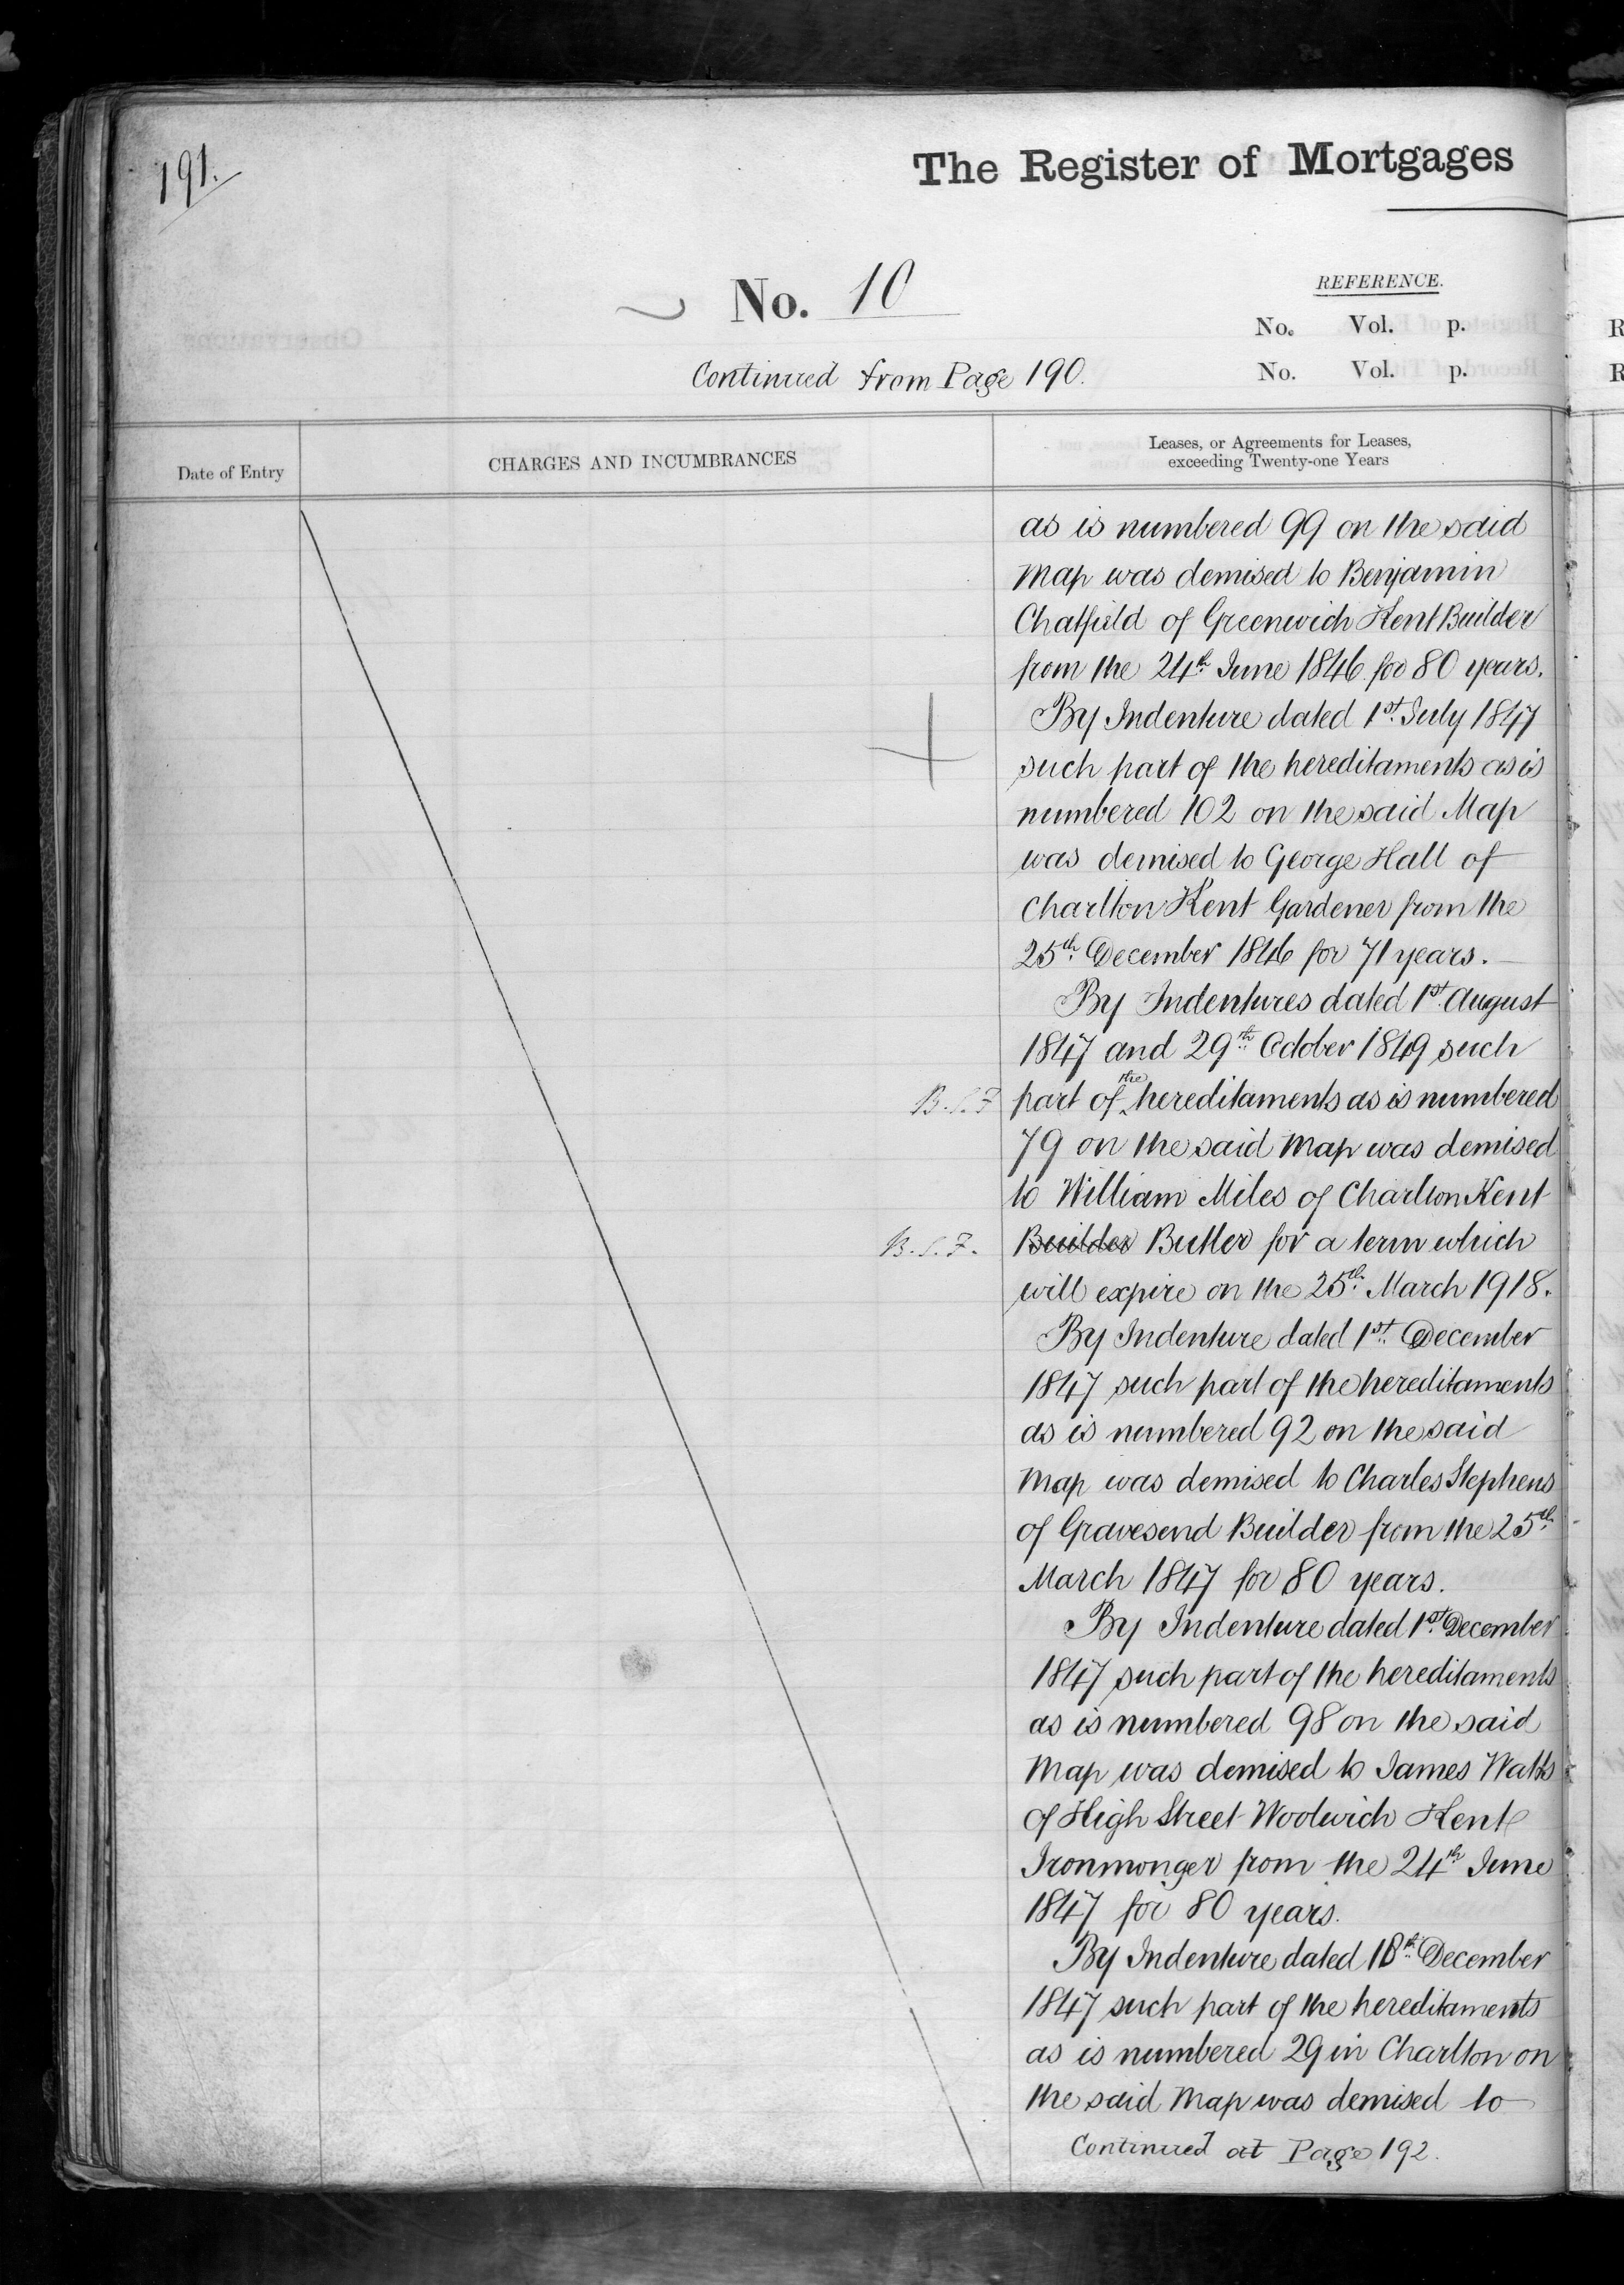 191.
The Register of Mortgages
No. 10
REFERENCE.
No. Vol. p.
No. Vol. p.
Continued from Page 190.
Date of Entry
CHARGES AND INCUMBRANCES
Leases, or Agreements for Leases,
exceeding Twenty-one Years
as is numbered 99 on the said
Map was demised to Benjamin
Chatfield of Greenwich Kent Builder
from the 24th June 1846 for 80 years.
By Indenture dated 1st July 1847
such part of the hereditaments as is
numbered 102 on the said Map
was demised to George Hall of
Charlton Kent Gardener from the
25th December 1846 for 71 years.
By Indentures dated 1st August
1847 and 29th October 1849 such
B.S.F part of the hereditaments as is numbered
79 on the said Map was demised
to William Miles of Charlton Kent
B.S.F. Builder Butler for a term which
will expire on the 25th March 1918.
By Indenture dated 1st December
1847 such part of the hereditaments
as is numbered 92 on the said
Map was demised to Charles Stephens
of Gravesend Builder from the 25th
March 1847 for 80 years.
By Indenture dated 1st December
1847 such part of the hereditaments
as is numbered 98 on the said
Map was demised to James Watts
of High Street Woolwich Kent
Ironmonger from the 24th June
1847 for 80 years.
By Indenture dated 18th December
1847 such part of the hereditaments
as is numbered 29 in Charlton on
the said Map was demised to
Continued at Page 192.